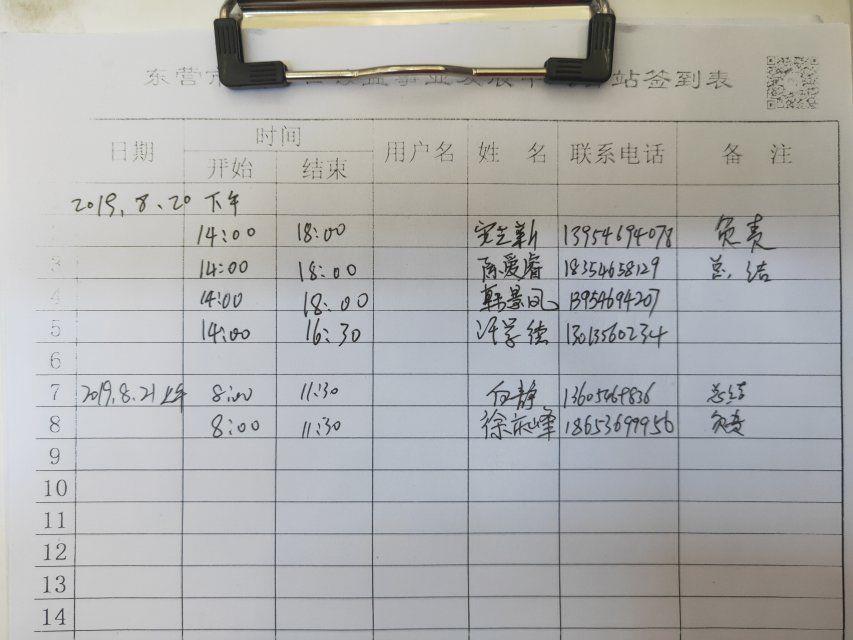 东营市 站签到表
日期 时间 用户名 姓 名 联系电话 备 注
开始 结束
2019.8.20 下午
14:00 18:00 13954694078 负责
3 14:00 18:00 陈爱睿 18354658129 总结
4 14:00 18:00 韩景凤 13954694207
5 14:00 16:30 许学德 13013560234
6
7 2019.8.21 上午 8:00 11:30 白静 13605469836 总结
8 8:00 11:30 18653699956 负责
9
10
11
12
13
14